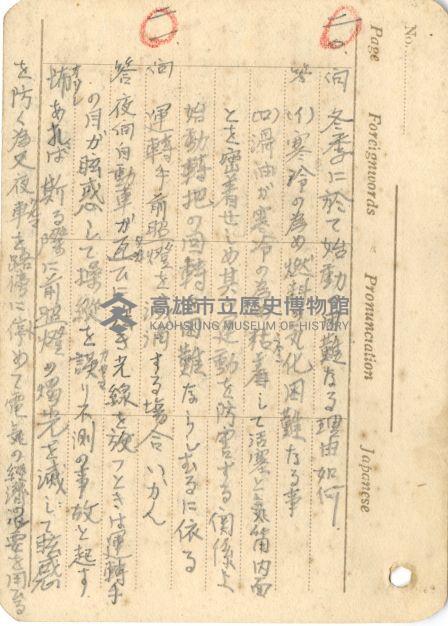 No.
Page Foreignwords Pronunciation Japanese
二〇
問 冬季に於て始動困難なる理由如何
答 (イ)寒冷の為め燃料気化困難なる事
(ロ)滑油が寒冷の為め粘着して活塞と気筩内面
とを密着せしめ其の運動を防害する関係上
始動転把の回転困難ならしむるに依る
二一
問 運転手前照燈を する場合いかん
答 夜間自動車が互ひに き光線を放つときは運転手
の目が眩惑して操縦を誤り不測の事故を起す
あれば斯る際に前照燈の燭光を減して眩惑
を防く為又夜 車を路傍に停めて電気の経済 要を用ゐる
高雄市立歷史博物館
KAOHSIUNG MUSEUM OF HISTORY